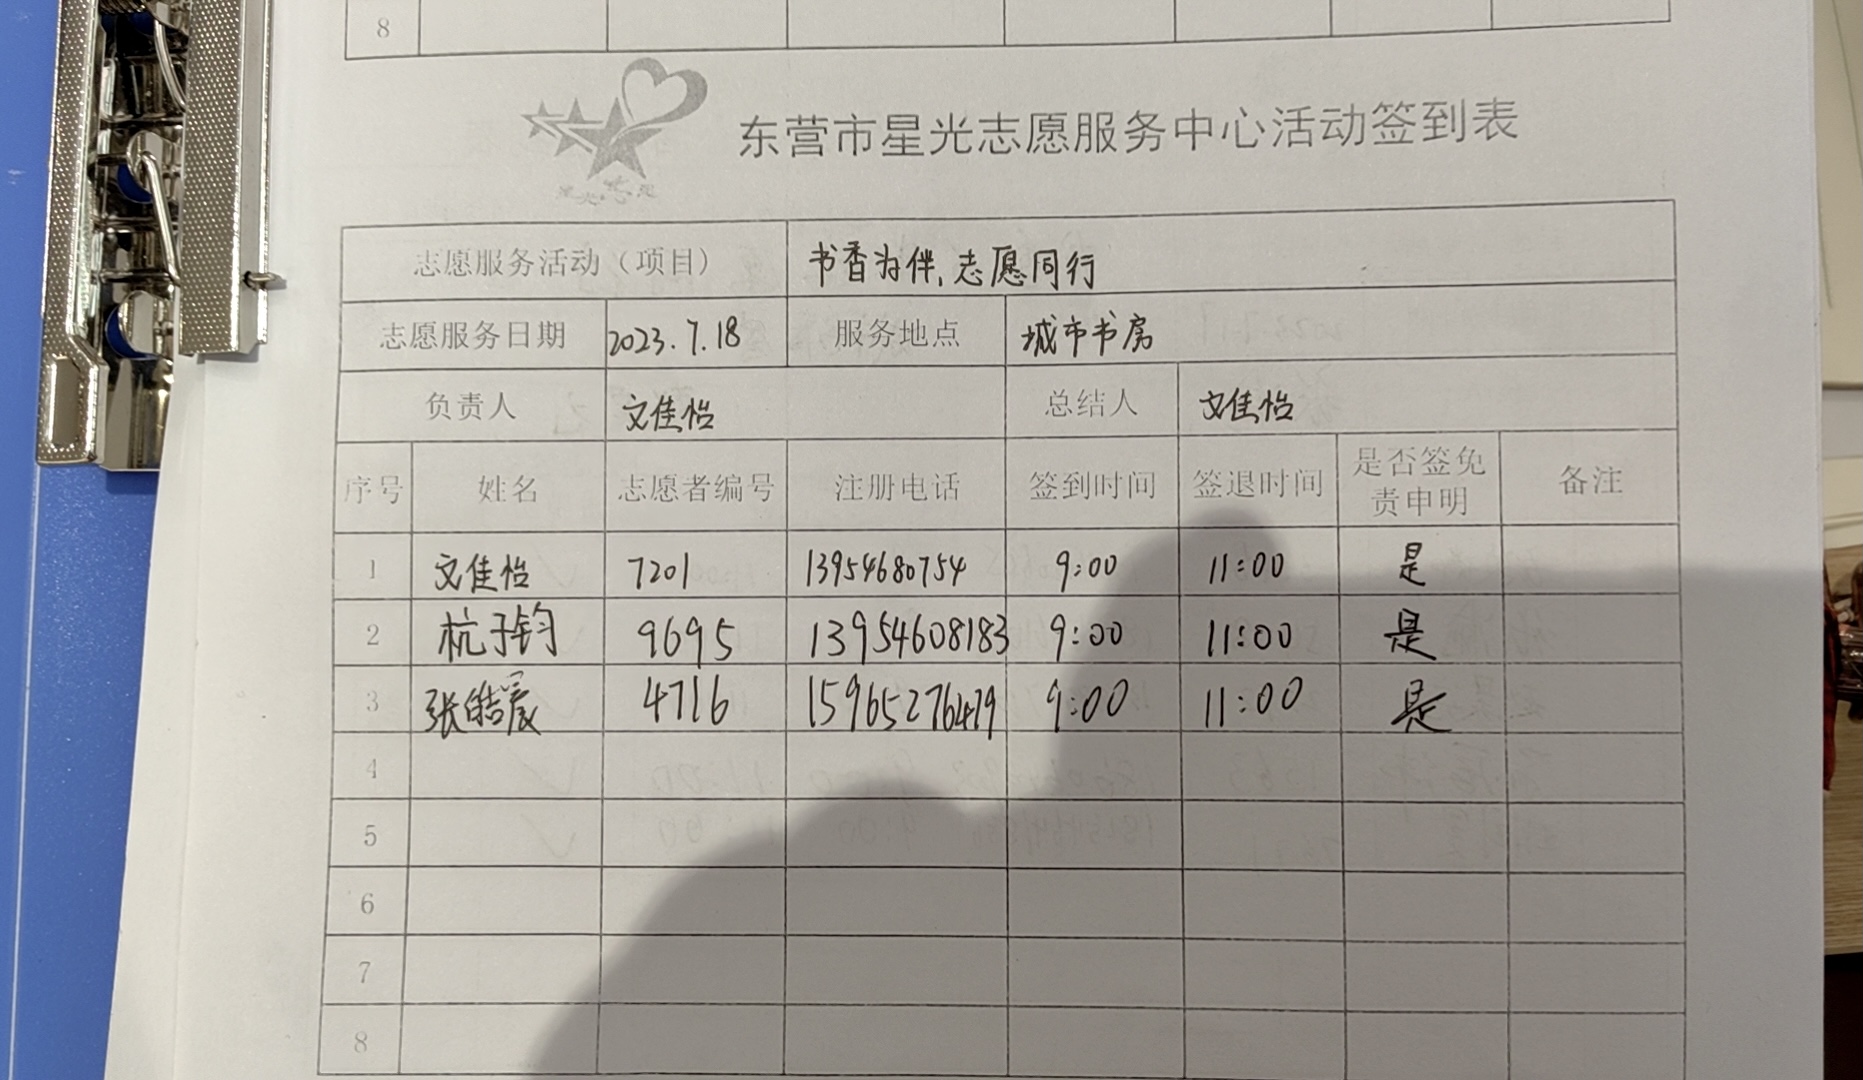 8
星光志愿
东营市星光志愿服务中心活动签到表
志愿服务活动（项目） 书香为伴,志愿同行
志愿服务日期 2023.7.18 服务地点 城市书房
负责人 文佳怡 总结人 文佳怡
序号 姓名 志愿者编号 注册电话 签到时间 签退时间 是否签免责申明 备注
1 文佳怡 7201 13954680754 9:00 11:00 是
2 杭子钧 9695 13954608183 9:00 11:00 是
3 张皓 4716 15965276479 9:00 11:00 是
4
5
6
7
8